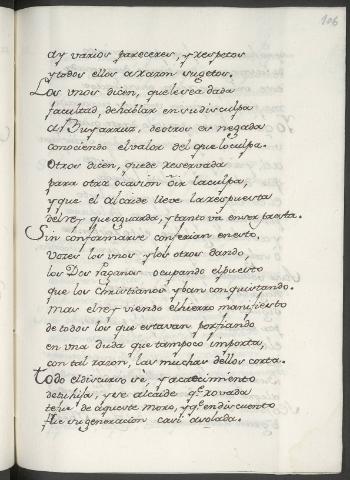 106
ay varios pareceres, y respetos
y todos ellos a razon sugetos.
Los unos dicen, que le sea dada
facultad, de hablar en su disculpa
al Bugarruz, de otros es negada
conociendo el valor del que lo culpa.
Otros dicen, quede reservada
para otra ocasion oir la culpa,
y que el alcaide lleve la respuesta
del rey que aguarda, y tanto va en ser presta.
Sin conformarse conferian en esto.
Votes los unos y los otros dando,
los Dos Paganos ocupando el puesto
que los Christianos yban conquistando.
mas el rey viendo el hierro manifiesto
de todos los que estavan porfiando
en una duda que tampoco importa,
con tal razon, las muchas dellos corta.
Todo el discurso vè, y acaecimiento
de su hija, y ve alcaide q.e rovada
tene de aqueste moro, y q.e en discuento
su generacion casi asolada.